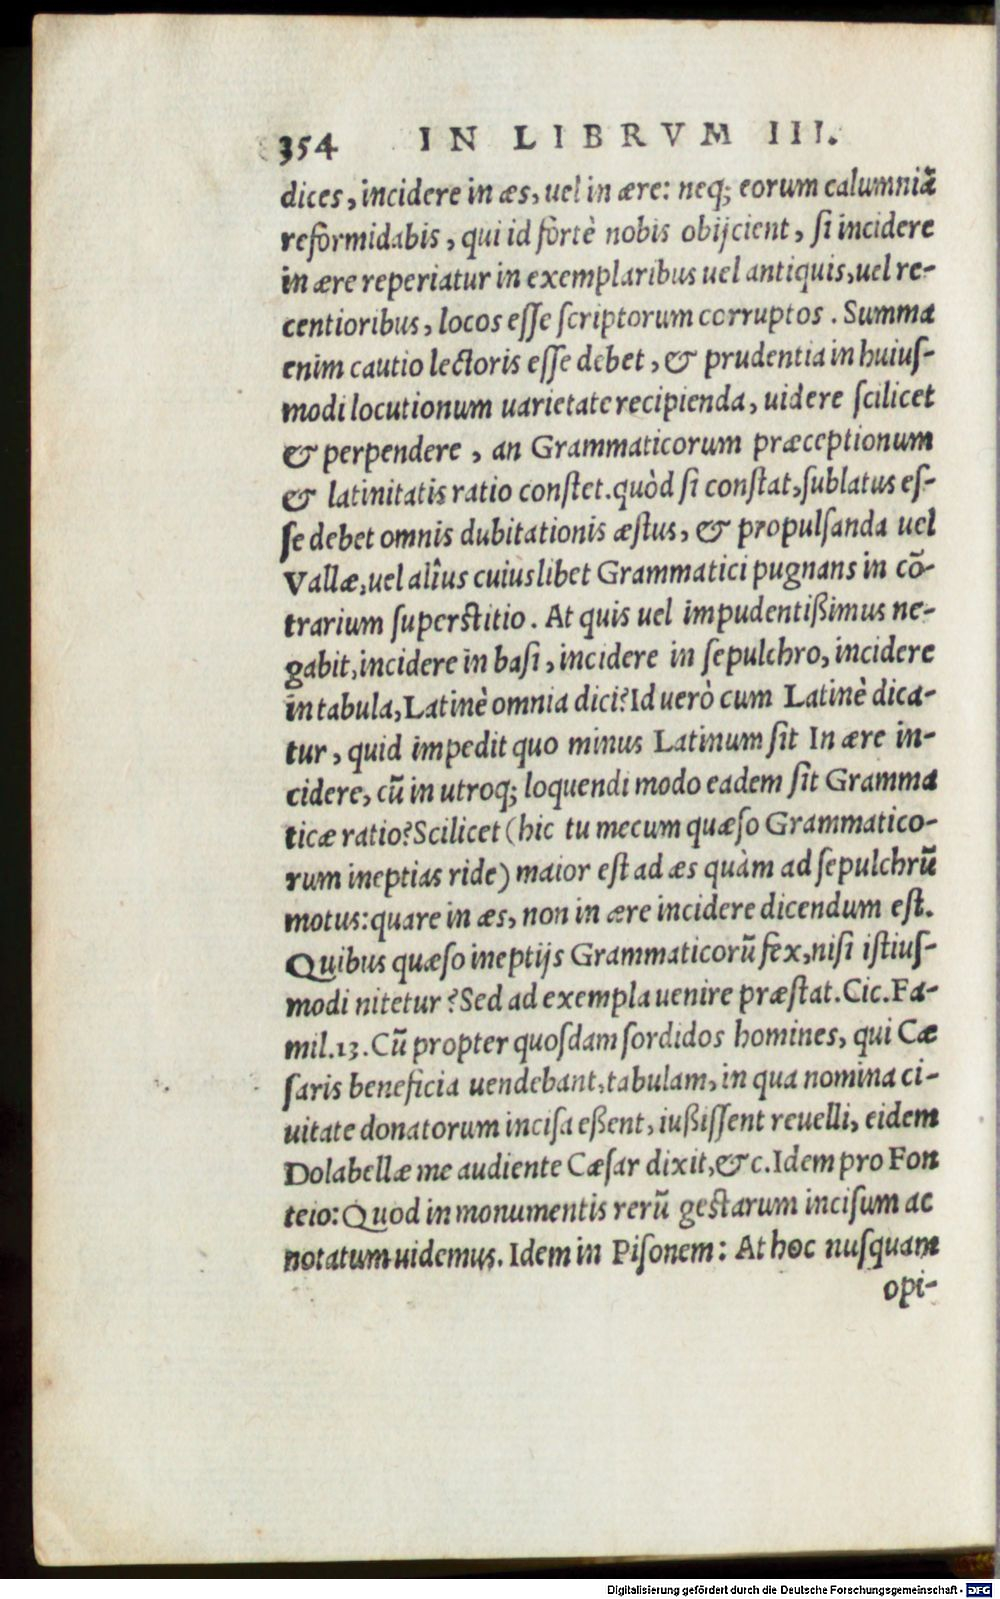 354 IN LIBRVM III.
dices, incidere in æs, uel in ære: neq; eorum calumniā
reformidabis, qui id fortè nobis obijcient, si incidere
in ære reperiatur in exemplaribus uel antiquis, uel re-
centioribus, locos esse scriptorum corruptos. Summa
enim cautio lectoris esse debet, & prudentia in huius-
modi locutionum uarietate recipienda, uidere scilicet
& perpendere, an Grammaticorum præceptionum
& latinitatis ratio constet. quòd si constat, sublatus es-
se debet omnis dubitationis æstus, & propulsanda uel
Vallæ, uel alîus cuiuslibet Grammatici pugnans in cō-
trarium superstitio. At quis uel impudentißimus ne-
gabit, incidere in basi, incidere in sepulchro, incidere
in tabula, Latinè omnia dici? Id uerò cum Latinè dica-
tur, quid impedit quo minus Latinum sit In ære in-
cidere, cū in utroq; loquendi modo eadem sit Gramma
ticæ ratio? Scilicet (hic tu mecum quæso Grammatico-
rum ineptias ride) maior est ad æs quàm ad sepulchrū
motus: quare in æs, non in ære incidere dicendum est.
Quibus quæso ineptijs Grammaticorū fex, nisi istius-
modi nitetur? Sed ad exempla uenire præstat. Cic. Fa-
mil. 13. Cū propter quosdam sordidos homines, qui Cæ
saris beneficia uendebant, tabulam, in qua nomina ci-
uitate donatorum incisa eßent, iußissent reuelli, eidem
Dolabellæ me audiente Cæsar dixit, &c. Idem pro Fon
teio: Quod in monumentis rerū gestarum incisum ac
notatum uidemus. Idem in Pisonem: At hoc nusquam
opi-
Digitalisierung gefördert durch die Deutsche Forschungsgemeinschaft - DFG